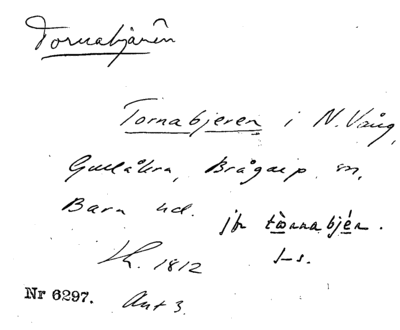 Tornabjärën
Tornabjeren i N. Vång,
Gullåkra, Brågarp sn,
Bara hd. jfr tòrnabjén.
Lk. 1812 I-s.
Nr 6297. Akt 3.